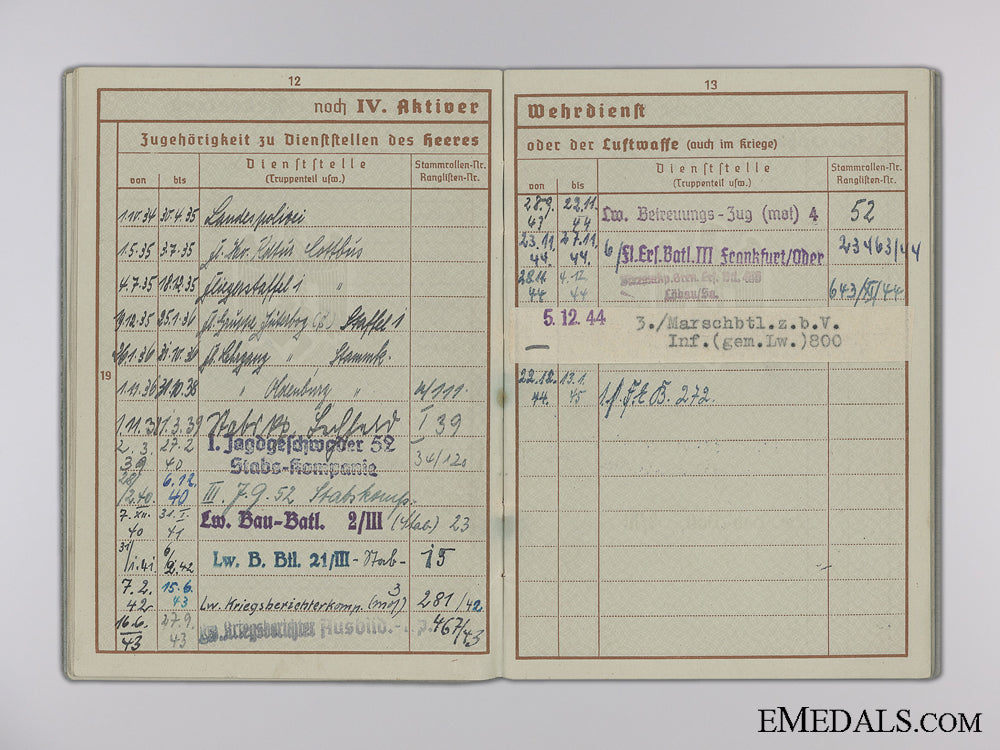 12
noch IV. Aktiver
Zugehörigkeit zu Dienststellen des Heeres
von bis Dienststelle (Truppenteil usw.) Stammrollen-Nr. Ranglisten-Nr.
19
1.10.34 30.4.35 Landespolizei
1.5.35 3.7.35 Cottbus
4.7.35 18.12.35 Fliegerstaffel 1 "
25.1.36 Fl. Gruppe Jüterbog Staffel 1
26.1.36 Fl. Lehrgang " Stammk.
1.11.36 31.10.38 " Oldenburg "
1.3.39 Stabskp. I 39
2.3.39 27.2.40 I. Jagdgeschwader 52 Stabs-Kompanie 34/120
6.12.40 III. J.G. 52 Stabskomp.
7.XII.40 31.I.41 Lw. Bau-Batl. 2/III (Stab) 23
31/1.41 6/2.42 Lw. B. Btl. 21/III - Stab - 15
7.2.42 15.6.43 Lw. Kriegsberichterkomp. (mot) 3 281/42
16.6.43 27.9.43 Lw. Kriegsberichter Ausbild.- 467/43
13
Wehrdienst
oder der Luftwaffe (auch im Kriege)
von bis Dienststelle (Truppenteil usw.) Stammrollen-Nr. Ranglisten-Nr.
28.9.43 22.11.44 Lw. Betreuungs-Zug (mot) 4 52
23.11.44. 27.11.44. 6/Fl.Ers.Batl.III Frankfurt/Oder 23463/44
28.11.44 4.12.44 Löbau/Sa. 643/III/44
5.12.44 3./Marschbtl.z.b.V.
Inf.(gem.Lw.)800
22.12.44. 13.1.45 B. 272.
EMEDALS.COM